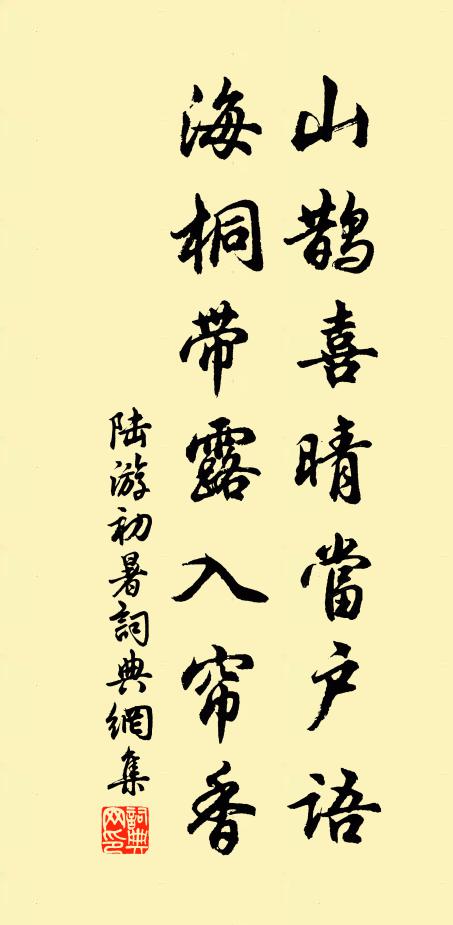 山鹊喜晴當户语
海桐带露入帘香
陆游初暑詞典網集
詞典网印